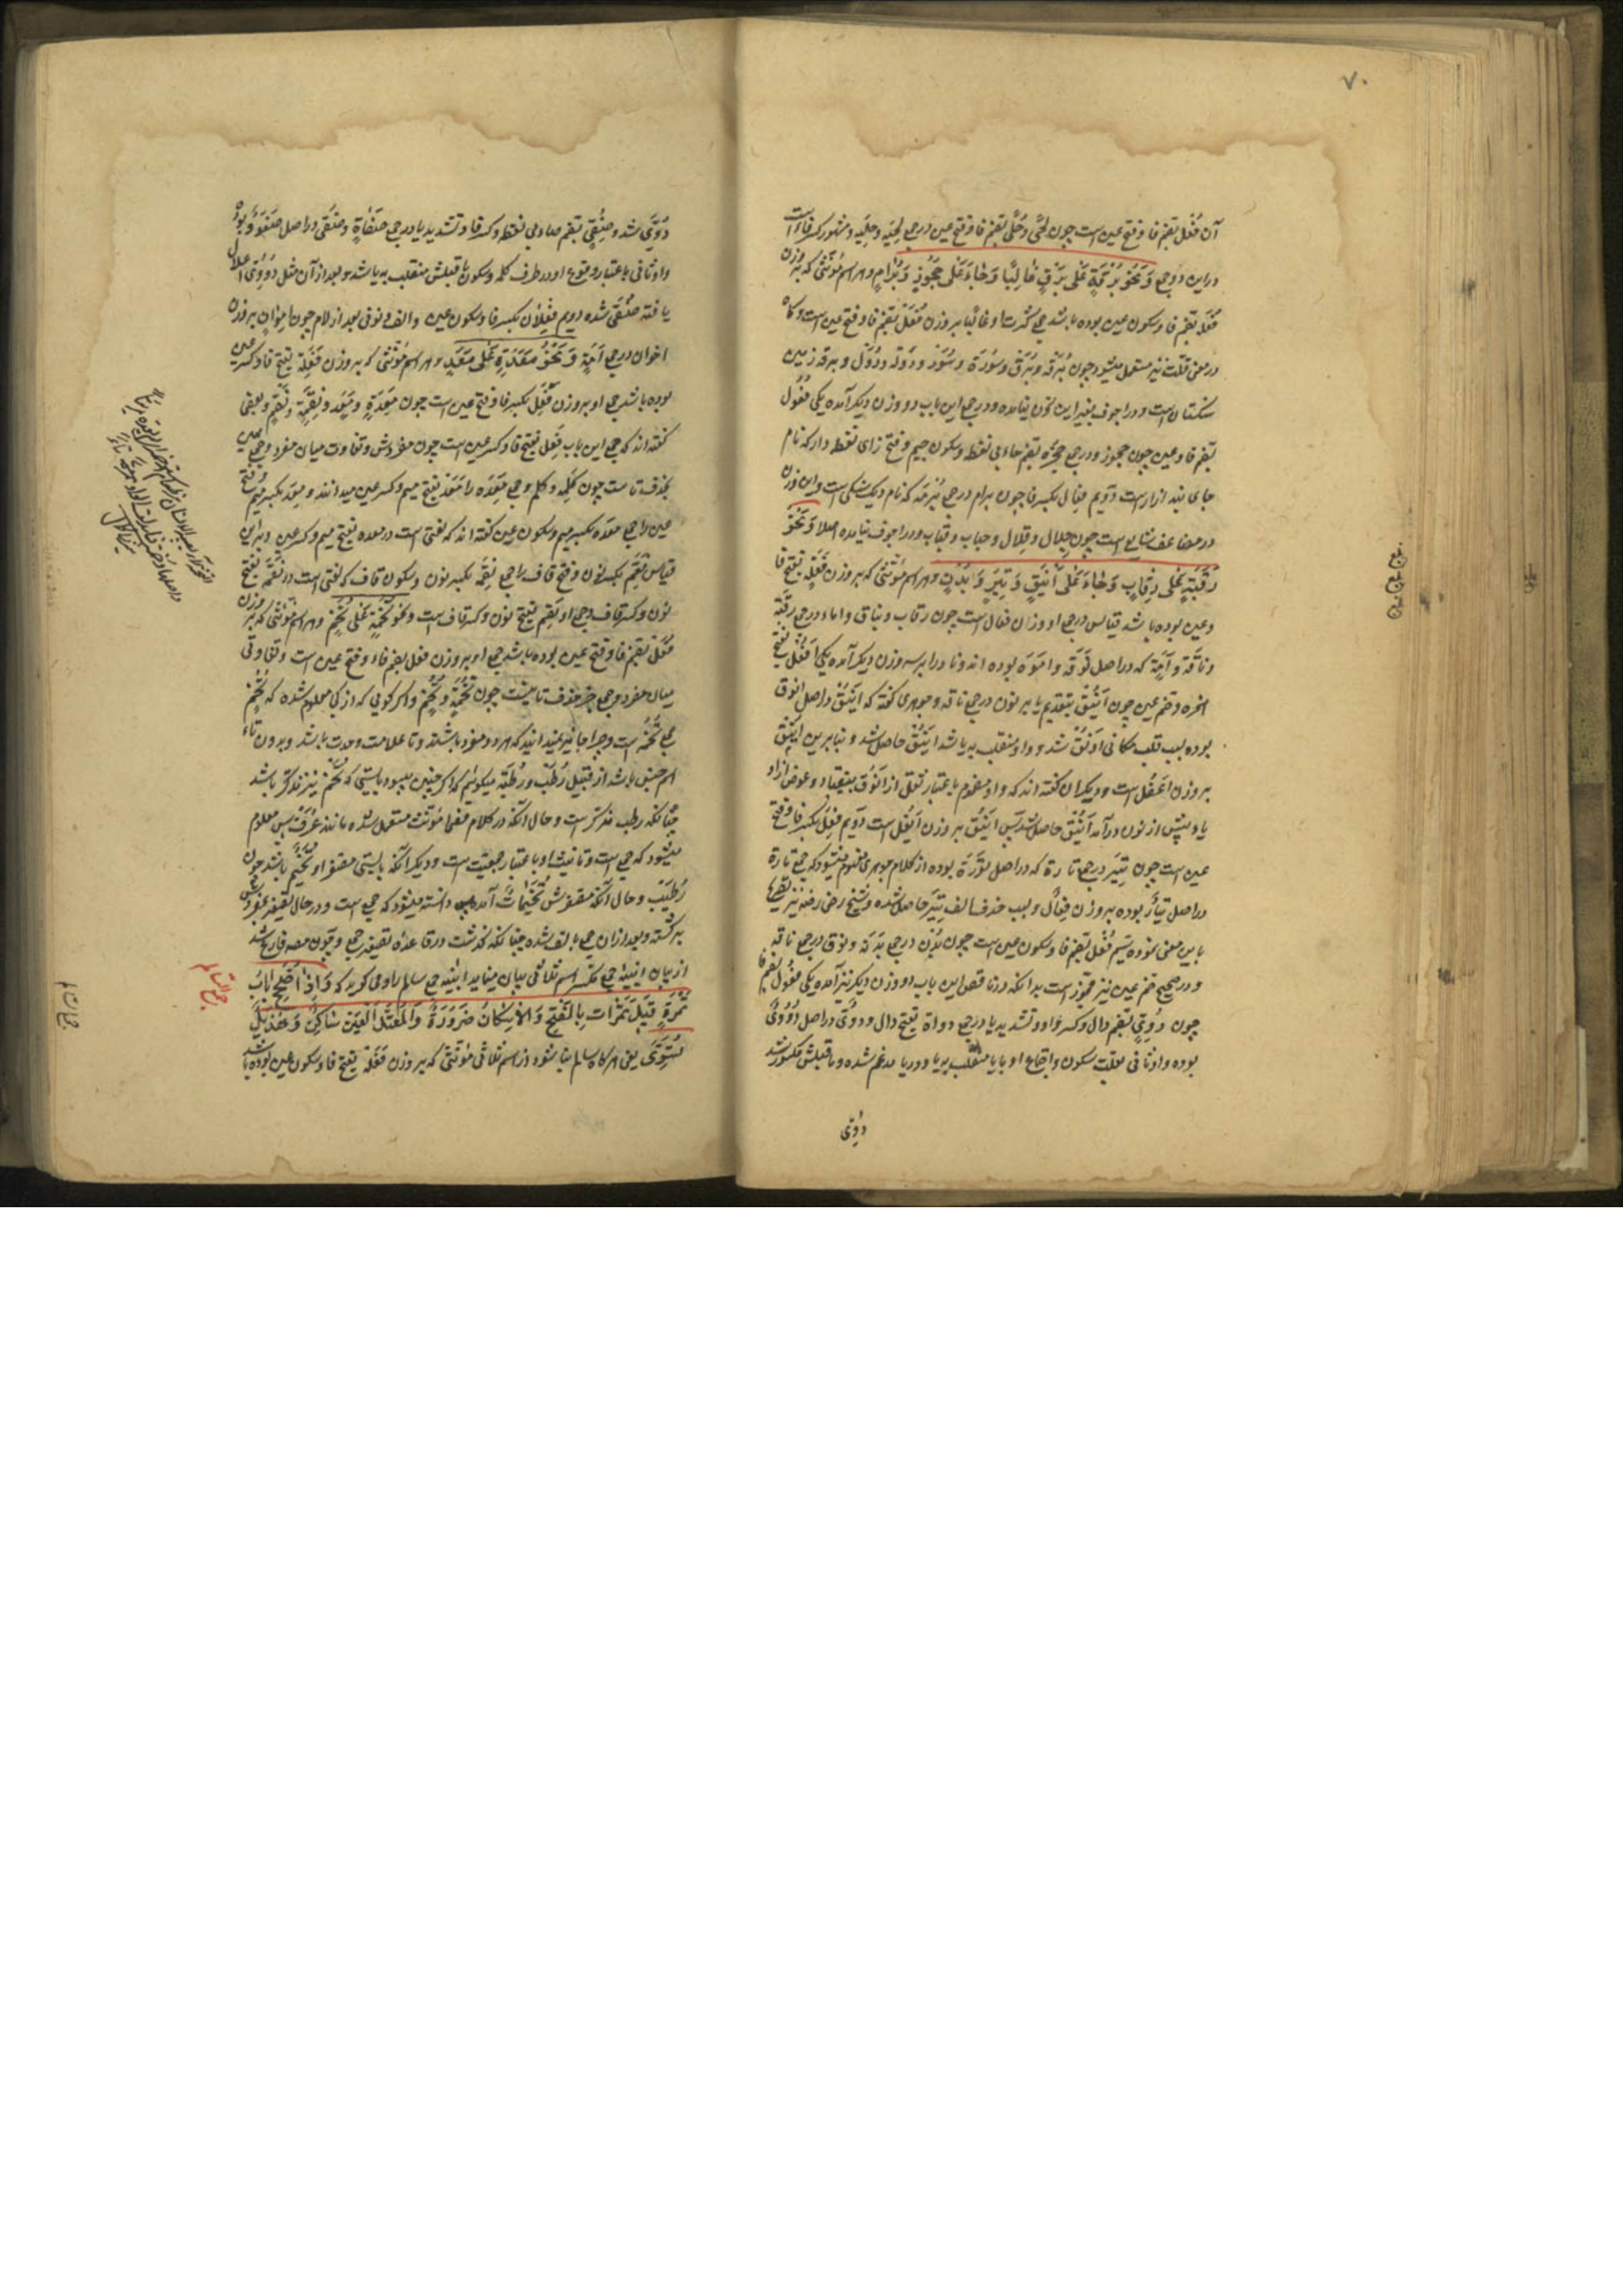 ۷۰
آن فُعَل بضم فا و فتح عین است چون لُحًی و حُلًی بضم فا و فتح عین در جمع لحیه و حلیه و مشهور کسر فا است
در این دو جمع وَنَحْوُ بُرْقَةٍ عَلَی بُرَقٍ غَالِبًا وَجَاءَ عَلَی حُجُوزٍ وَبِرَامٍ و هر اسم مؤنثی که بر وزن
فُعْلَة بضم فا و سکون عین بوده باشد جمع کثرت او غالبًا بر وزن فُعَل بضم فا و فتح عین است و گاه
در معنی قلت نیز مستعمل میشود چون بُرقه و بُرَق و سُورَة و سُوَر و دُولَه و دُوَل و برقه زمین
سنگستان است و در اجوف بغیر این وزن نیامده و در جمع این باب دو وزن دیگر آمده یکی فُعُول
بضم فا و عین چون حجوز در جمع حجزه بضم حاء بی نقطه و سکون جیم و فتح زای نقطه دار که نام
جای بند ازار است دویم فِعَال بکسر فا چون برام در جمع بُرمَه که نام دیگ سنگی است و این وزن
در مضاعف شایع است چون جلال و قلال و حباب و قباب و در اجوف نیامده اصلا وَنَحْوُ
رَقَبَةٍ عَلَی رِقَابٍ وَجَاءَ عَلَی أَیْنُقٍ وَتِیَرٍ وَبُدْنٍ و هر اسم مؤنثی که بر وزن فَعَلَه بفتح فا
و عین بوده باشد قیاس در جمع او وزن فعال است چون رقاب و نیاق و اماء در جمع رقبة
و ناقة و اَمَة که در اصل نَوَقَه و اَمَوَه بوده اند و نادرا بر سه وزن دیگر آمده یکی اَفْعُل بفتح
همزه و ضم عین چون اَیْنُق بتقدیم یا بر نون در جمع ناقه و جوهری گفته که اینق در اصل انوق
بوده بسبب قلب مکانی اَوْنُق شد و واو منقلب به یا شد اَیْنُق حاصل شد و بنابرین اینق
بر وزن اَعْفُل است و دیگران گفته اند که واو مضموم باعتبار ثقل از اَنْوُق بیفتاد و عوض از او
یا و پیش از نون در آمد اَیْنُق حاصل شد پس اینق بر وزن اَیْفُل است دویم فِعَل بکسر فا و فتح
عین است چون تِیَر در جمع تارة که در اصل تَوَرَة بوده از کلام جوهری مفهوم میشود که جمع تارة
در اصل تیار بوده بر وزن فعال و بسبب حذف الف تِیَر حاصل شده و شیخ رضی رضه نیز تصریح
باین معنی نموده سیم فُعْل بضم فا و سکون عین است چون بُدْن در جمع بدنه و نوق در جمع ناقه
و در صحیح ضم عین نیز مجوز است بدانکه در ناقص این باب دو وزن دیگر نیز آمده یکی فعول بضم فا
چون دُوِیّ بضم دال و کسر واو و تشدید یا در جمع دواة بفتح دال و دُوِیّ در اصل دُوُوی
بوده واو ثانی بعلت سکون و اجتماع او با یا منقلب به یا و در یا مدغم شده و ماقبلش مکسور شد
دُوِیّ
دُوِیّ شد و صُفِیّ بضم صاد بی نقطه و کسر فا و تشدید یا در جمع صَفَاةٍ و صُفِیّ در اصل صُفُوو بوده
واو ثانی باعتبار وقوع او در طرف کلمه و سکون ماقبلش منقلب به یا شد و بعد از آن مثل دُوُوی اعلال
یافته صُفِیّ شده دویم فِعْلان بکسر فا و سکون عین و الف و نون بعد از لام چون اموان بر وزن
اخوان در جمع اَمَةٍ وَنَحْوُ مَعِدَةٍ عَلَی مِعَدٍ و هر اسم مؤنثی که بر وزن فَعِلَة بفتح فا و کسر عین
بوده باشد جمع او بر وزن فِعَل بکسر فا و فتح عین است چون مَعِدَةٍ و مِعَد و نَقِمَة و نِقَم و بعضی
گفته اند که جمع این باب فَعِل بفتح فا و کسر عین است چون مفردش و تفاوت میان مفرد و جمع همین
بحذف تاست چون کَلِمه و کَلِم و جمع مَعِدَه را مَعِد بفتح میم و کسر عین میدانند و مِعَد بکسر میم و فتح
عین را جمع مِعْدَه بکسر میم و سکون عین گفته اند که لغتی است در معده بفتح میم و کسر عین و بر این
قیاس نِقَم بکسر نون و فتح قاف را جمع نِقْمَه بکسر نون و سکون قاف که لغتی است در نَقِمَة بفتح
نون و کسر قاف و جمع او نَقِم بفتح نون و کسر قاف است وَنَحْوُ تُخَمَةٍ عَلَی تُخَمٍ و هر اسم مؤنثی که بر وزن
فُعَلَة بضم فا و فتح عین بوده باشد جمع او بر وزن فعل بضم فاء و فتح عین است و تفاوتی
میان مفرد و جمع جز حذف تا نیست چون تُخَمَة و تُخَم و اگر گویی که از کجا معلوم شده که تُخَم
جمع تُخَمَه است و چرا جایز نمیدانید که هر دو مفرد باشند و تا علامت وحدت باشد و بدون تاء
اسم جنس باشد از قبیل رُطَب و رُطَبَه میگوییم که اگر چنین میبود بایستی که تُخَم نیز مذکر باشد
چنانکه رطب مذکر است و حال آنکه در کلام فصحا مؤنث مستعمل شده مانند غُرَف پس معلوم
میشود که جمع است و تانیث او باعتبار جمعیت است و دیگر آنکه بایستی مصغر او تُخَیْم باشد چون
رُطَیْب و حال آنکه مصغرش تُخَیْمَات آمده پس دانسته میشود که جمع است و در حال تصغیر بمفردش
برگشته و بعد از آن جمع بالف شده چنانکه گذشت در قاعده تصغیر جمع و چون مصه فارغ شد
از بیان ابنیه جمع مکسر اسم ثلاثی بیان مینماید ابنیه جمع سالم را و می گوید که وَإِذَا صُحِّحَ بَابُ
تَمْرَةٍ قِیلَ تَمَرَات بِالْفَتْحِ وَالْإِسْکَانُ ضَرُورَةٌ وَالْمُعْتَلُّ الْعَیْنِ سَاکِنٌ وَهُذَیْلٌ
تُسَوِّی یعنی هرگاه جمع سالم بنا شود از اسم ثلاثی مؤنثی که بر وزن فَعْلَة بفتح فا و سکون عین بوده باشد
جمع السالم